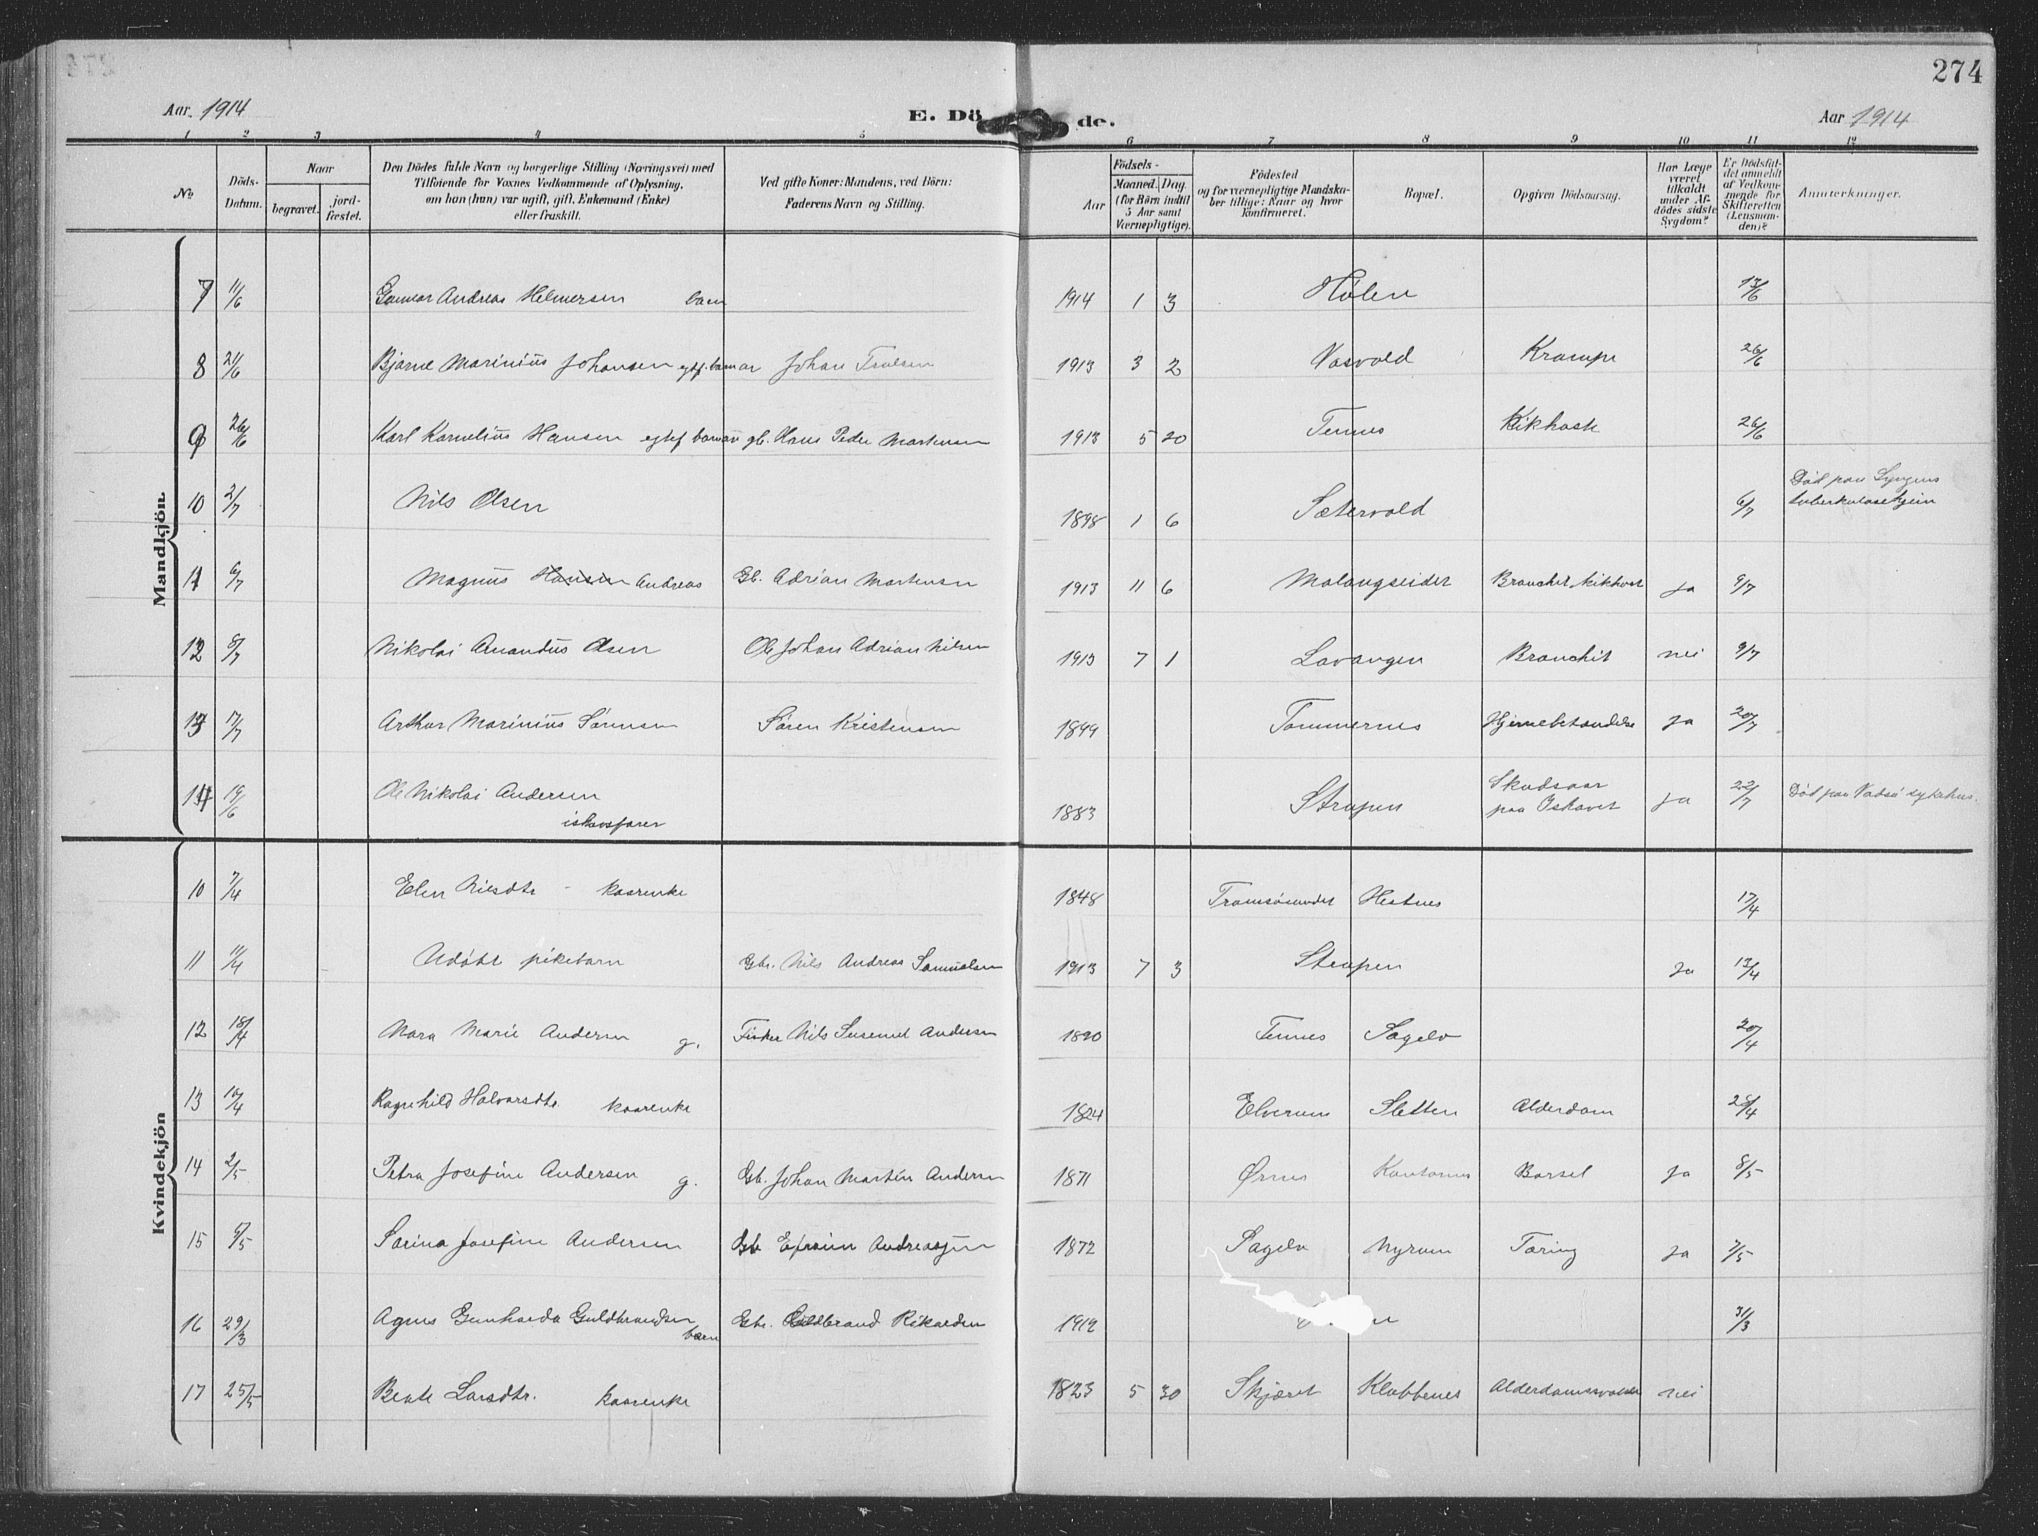 274
Aar 1914
E. Dö de.
Aar 1914
1 2 3 4 5 6 7 8 9 10 11 12
No
Döds-Datum.
Naar
begravet.
jordfæstet.
Den Dödes fulde Navn og borgerlige Stilling (Næringsvei) med
Tilföiende for Voxnes Vedkommende af Oplysning,
om han (hun) var ugift, gift, Enkemand (Enke)
eller fraskilt.
Ved gifte Koner: Mandens, ved Börn:
Faderens Navn og Stilling.
Födsels-
Aar
Maaned. Dag.
(for Börn indtil
5 Aar samt
Værnepligtige).
Födested
og for værnepligtige Mandskaber tillige: Naar og hvor
konfirmeret.
Bopæl.
Opgiven Dödsaarsag.
Har Læge
været
tilkaldt
under Afdödes sidste
Sygdom?
Er Dödsfaldet anmeldt
af Vedkommende for
Skifteretten
(Lensmanden)?
Anmærkninger.
Mandkjön.
7 11/6 Gunnar Andreas Helmersen barn 1914 1 3 Hølen 13/6
8 21/6 Bjarne Marinius Johansen egtf. barn av Johan 1913 3 2 Vasvold Krampe 26/6
9 26/6 Karl Kornelius Hansen egtef barn av gb. Hans Peder Martensen 1913 5 20 Tennes Kikhoste 26/6
10 2/7 Nils Olsen 1898 1 6 Sætervold 6/7 Død paa Lyngens
tuberkulosehjem
11 6/7 Magnus Hansen Andreas Gb. Adrian Martensen 1913 11 6 Malangseidet Bronchit kikhost ja 9/7
12 8/7 Nikolai Amandus Olsen Ole Johan Adrian Nilsen 1913 7 1 Lavangen Bronchit nei 9/7
13 17/7 Arthur Marinius Sørensen Søren Kristensen 1899 Tommernes Hjernebetændelse ja 20/7
14 19/6 Ole Nikolai Andersen
ishavsfarer 1883 Strupen Skudsaar
paa Ishavet ja 22/7 Død paa Vadsø sykehus.
Kvindekjön
10 7/4 Elen Nilsdtr - kaarenke 1848 Tromsøsundet Hestnes 17/4
11 11/4 Udøbt pikebarn Gbr. Nils Andreas Samuelsen 1913 7 3 Strupen ja 13/4
12 18/4 Mara Marie Andersen g. Fisker Nils Andersen 1890 Tennes Sagelv 20/4
13 10/4 Ragnhild Halvarsdtr. kaarenke 1824 Elverum Sletten Alderdom 28/4
14 2/5 Petra Josefine Andersen g. Gb. Johan Martin Andersen 1871 Ørnes Kantornes Barsel ja 8/5
15 6/5 Sarina Josefine Andersen Gb Efraim Andreassen 1872 Sagelv Nyrum Tæring ja 7/5
16 29/3 Agnes Gunharda Guldbrandsen
barn Gbr. Guldbrand Rikardsen 1912 31/3
17 25/5 Berte Larsdtr. kaarenke 1823 5 30 Skjæret Klubbenes Alderdomssvakhet nei